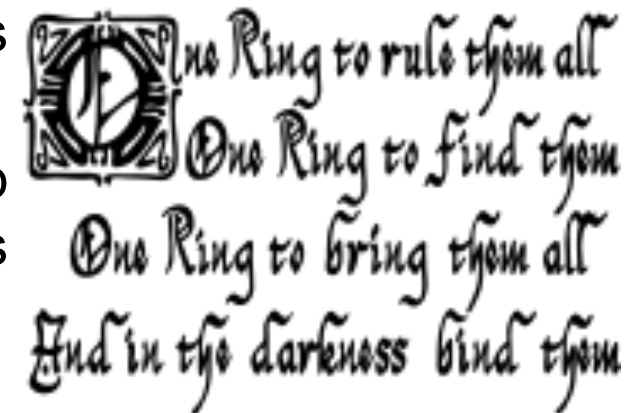 One Ring to rule them all
One Ring to find them
One Ring to bring them all
And in the darkness bind them